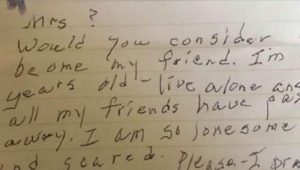 Mrs ?
Would you consider
become my friend. I'm
years old - live alone an
all my friends have pas
away. I am so lonesome
nd scared. Please - I pra